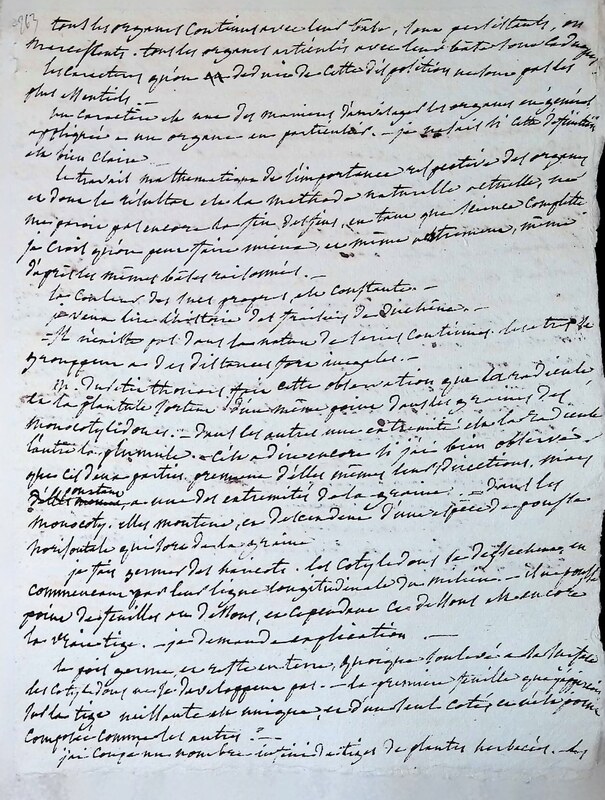 263
tous les organes continus avec leur base, sont persistants, ou
marcessents. tous les organes articulés avec leur base sont caduques,
les caracteres qu'on deduit de cette disposition ne sont pas les
plus essentiels. —
un caractère est une des manieres d'envisager les organes en général
appliquée a un organe en particulier. — je ne sais si cette definition
est bien claire —
le travail mathematique de l'importance respective des organes
et dont le résultat est la methode naturelle actuelle, ne
me paroit pas encore la fin des fins, en tant que science complete
je crois qu'on peut faire mieux, et même autrement, même
d'après les mêmes bases raisonnées. —
la couleur des sucs propres, est constante. —
je veux lire l'histoire des fraisiers de Duchêne. —
— il n'existe pas dans la nature de series continues. les etres se
grouppent a des distances fort inégales. —
M. du petit thouars fait cette observation que la radicule
de la plantule sortent d'un même point dans les graines des
monocotyledones. — dans les autres une extremité est la radicule
l'autre la plumule. — c'est a dire encore si j'ai bien observé
que ces deux parties prennent d'elles mêmes leurs directions, mais
constamment a une des extremités de la graine; — dans les
monocoty. elles montent, et descendent d'une espece de pousse
horisontale qui sort de la graine
je fais germer des haricots. les cotyledons se deflechissent en
commencant par leur ligne longitudinale du milieu. — il ne pousse
point de feuilles au dessous, et cependant ce dessous est encore
la vraie tige. — je demande explication. —
le pois germe, et reste en terre, quoique soulevé a la surface
les cotyledons ne se developpent pas. — la premiere feuille qui
sur la tige naissante est unique, et d'un seul coté, et n'est point
composée comme les autres? —
j'ai coupé un nombre infini de tiges de plantes herbacées. — les